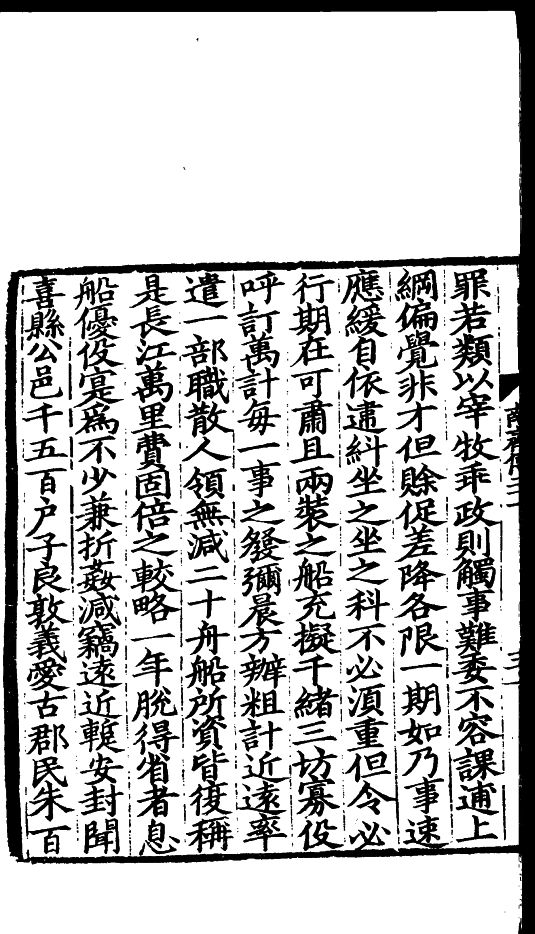 罪若類以宰牧乖政則觸事難委不容課逋上
綱偏覺非才但賖促差降各限一期如乃事速
應緩自依違糾坐之坐之科不必湏重但令必
行期在可肅且兩装之船充擬千緒三坊寡役
呼訂萬計每一事之發彌晨方辦粗計近遠率
遣一部職散人領無減二十舟船所資皆復稱
是長江萬里費固倍之較略一年脫得省者息
船優役寔爲不少兼折姦減竊遠近蹔安封聞
喜縣公邑千五百户子良敦義愛古郡民朱百